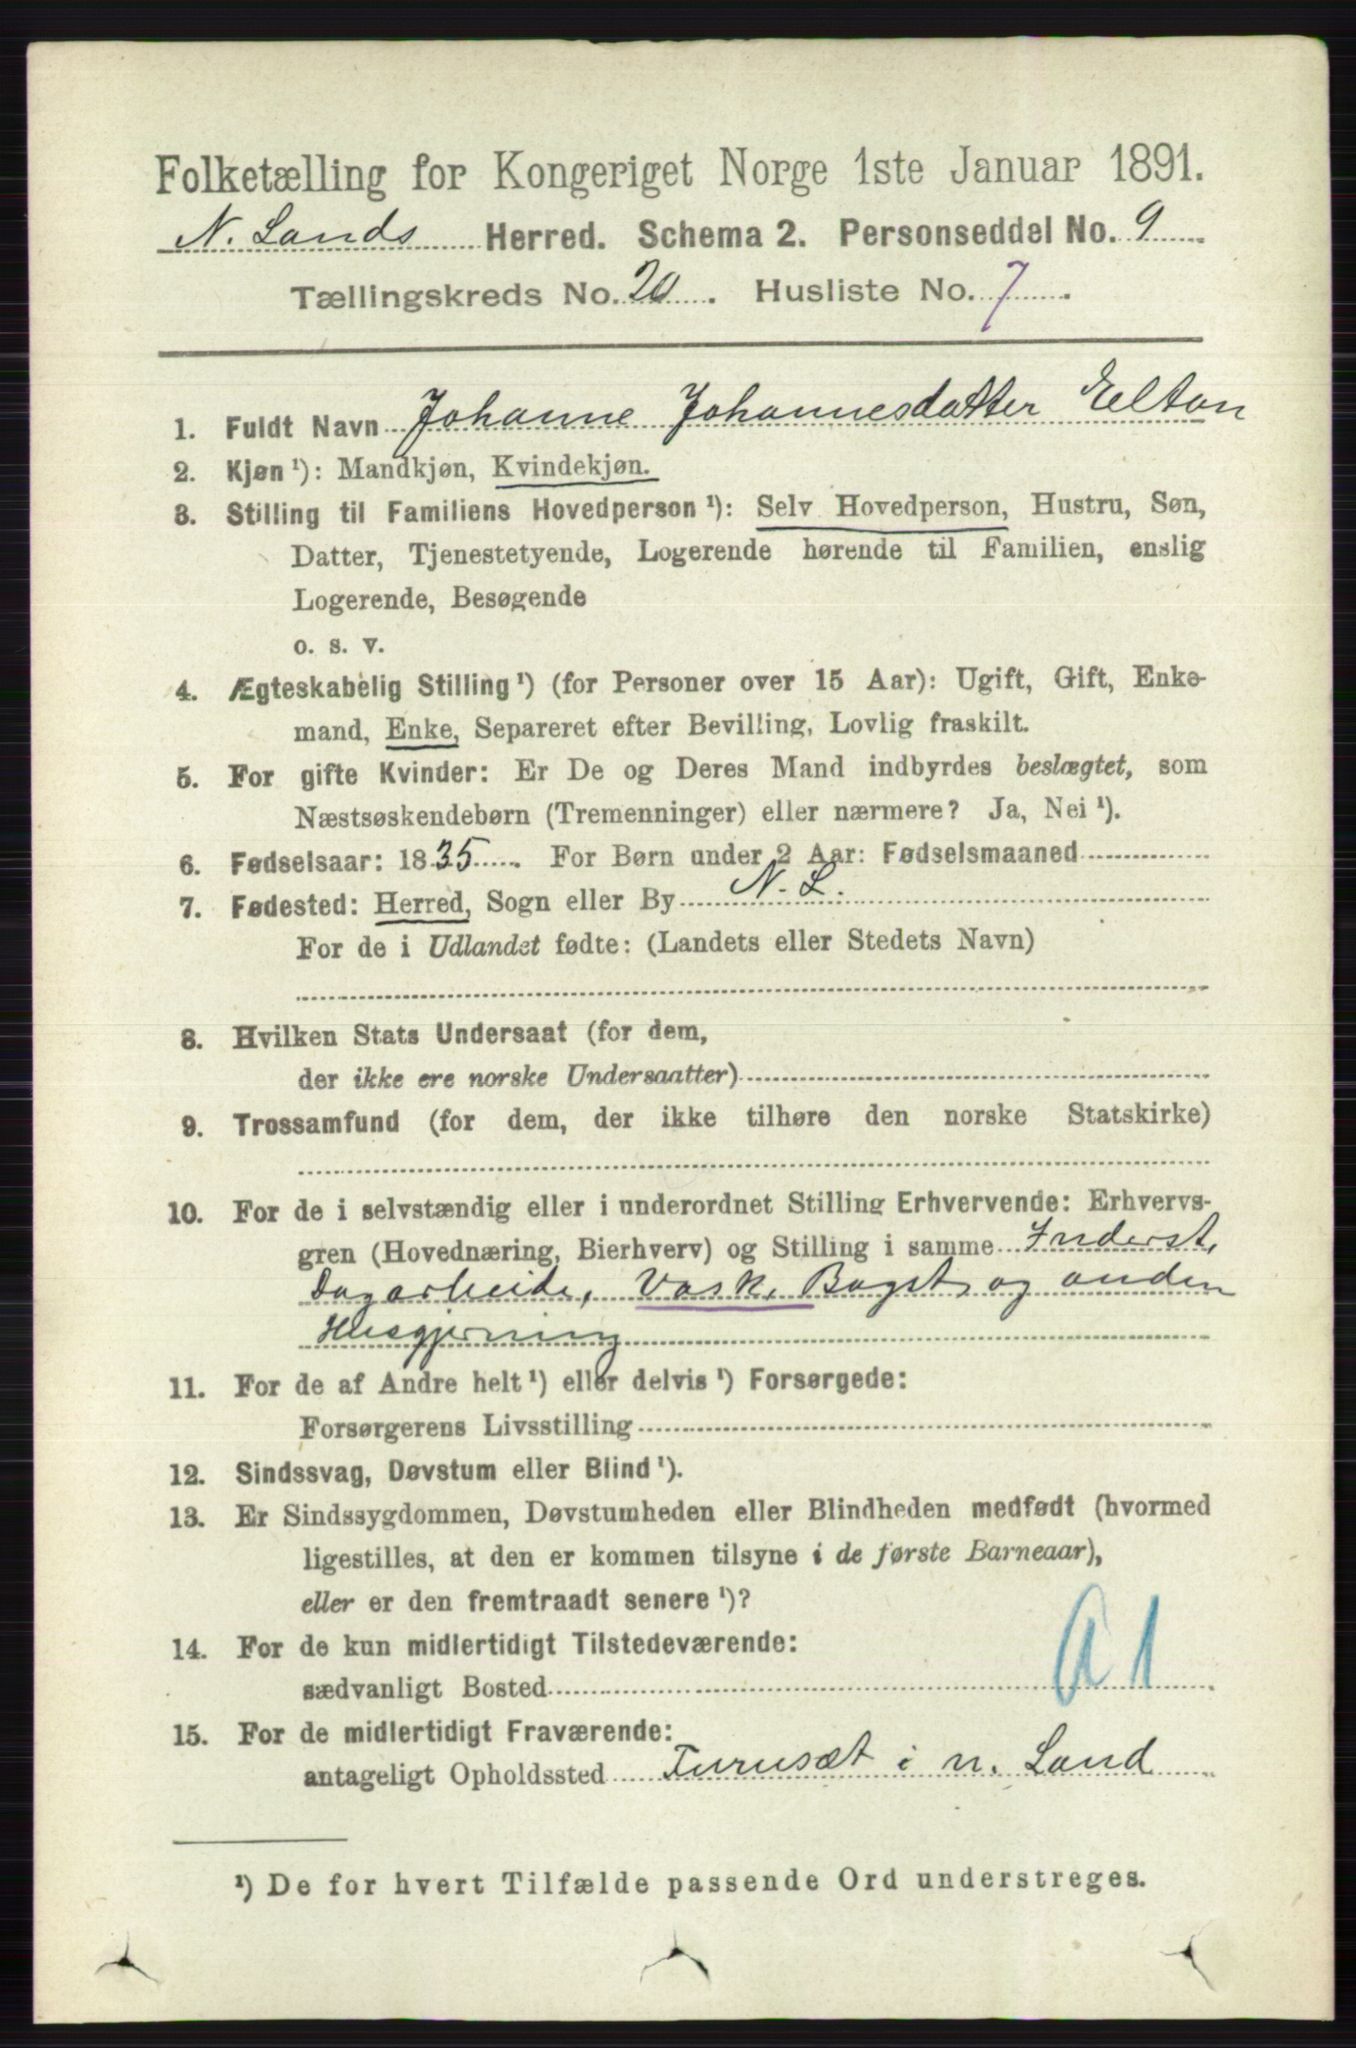 Folketælling for Kongeriget Norge 1ste Januar 1891.
N. Lands Herred. Schema 2. Personseddel No. 9
Tællingskreds No. 20. Husliste No. 7.
1. Fuldt Navn Johanne Johannesdatter Elton
2. Kjøn ¹): Mandkjøn, Kvindekjøn.
3. Stilling til Familiens Hovedperson ¹): Selv Hovedperson, Hustru, Søn,
Datter, Tjenestetyende, Logerende hørende til Familien, enslig
Logerende, Besøgende
o. s. v.
4. Ægteskabelig Stilling ¹) (for Personer over 15 Aar): Ugift, Gift, Enke-
mand, Enke, Separeret efter Bevilling, Lovlig fraskilt.
5. For gifte Kvinder: Er De og Deres Mand indbyrdes beslægtet, som
Næstsøskendebørn (Tremenninger) eller nærmere? Ja, Nei ¹).
6. Fødselsaar: 1835. For Børn under 2 Aar: Fødselsmaaned
7. Fødested: Herred, Sogn eller By N. L.
For de i Udlandet fødte: (Landets eller Stedets Navn)
8. Hvilken Stats Undersaat (for dem,
der ikke ere norske Undersaatter)
9. Trossamfund (for dem, der ikke tilhøre den norske Statskirke)
10. For de i selvstændig eller i underordnet Stilling Erhvervende: Erhvervs-
gren (Hovednæring, Bierhverv) og Stilling i samme Inderst,
Dagarbeide, Vask, Bagst og anden
Husgjerning
11. For de af Andre helt ¹) eller delvis ¹) Forsørgede:
Forsørgerens Livsstilling
12. Sindssvag, Døvstum eller Blind ¹).
13. Er Sindssygdommen, Døvstumheden eller Blindheden medfødt (hvormed
ligestilles, at den er kommen tilsyne i de første Barneaar),
eller er den fremtraadt senere ¹)?
14. For de kun midlertidigt Tilstedeværende:
sædvanligt Bosted
a 1
15. For de midlertidigt Fraværende:
antageligt Opholdssted Turusæt i n. Land
¹) De for hvert Tilfælde passende Ord understreges.